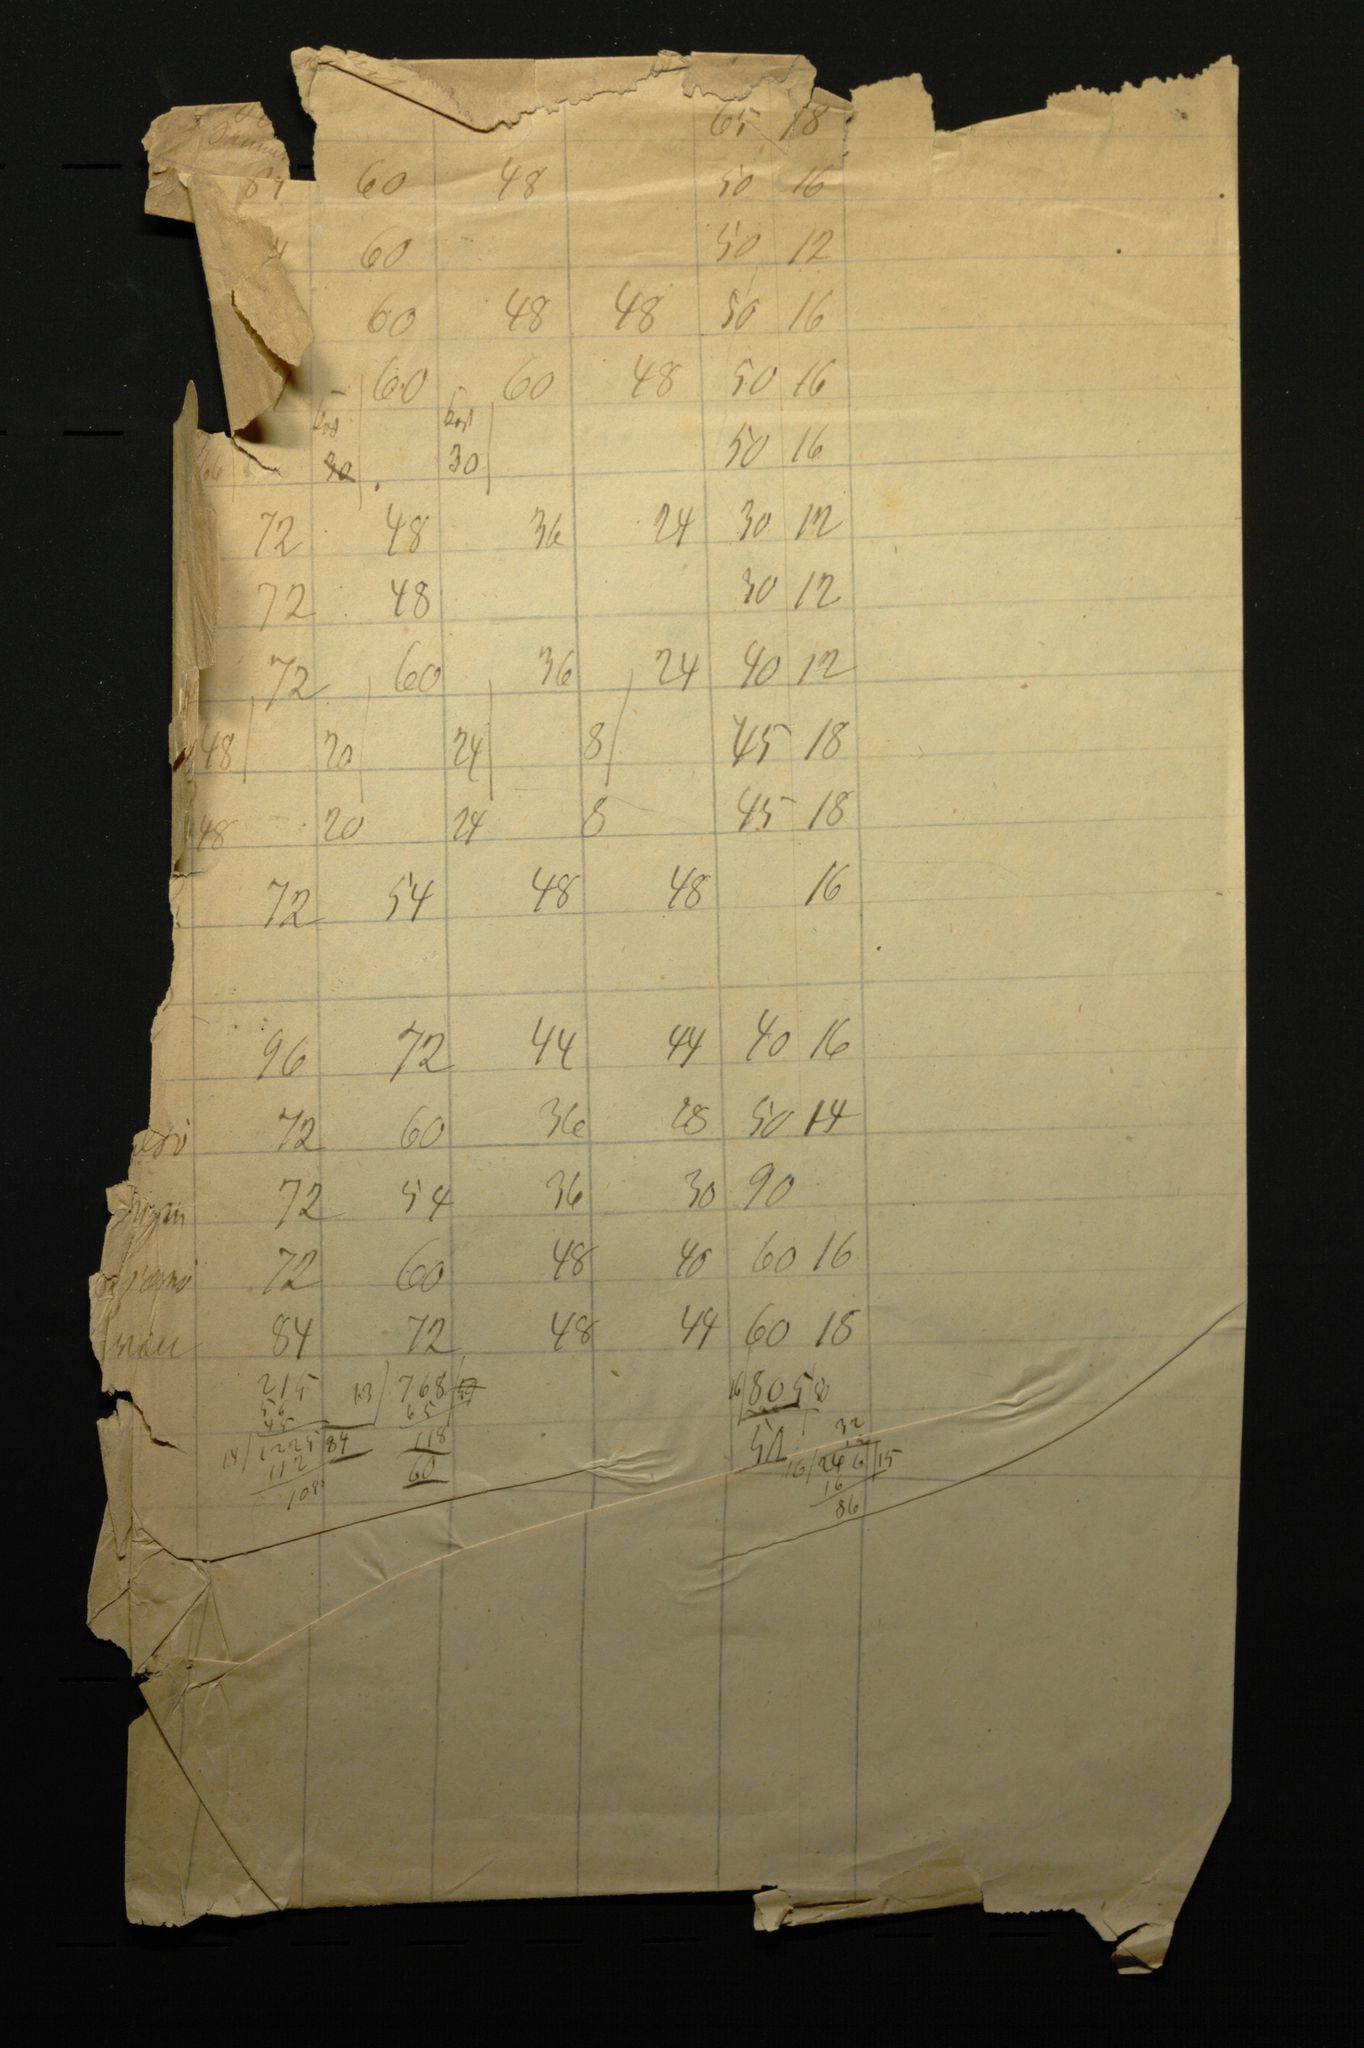 65 18
84 60 48 50 16
60 50 12
60 48 48 50 16
60 60 48 50 16
30 30 50 16
72 48 36 24 30 12
72 48 30 12
72 60 36 24 40 12
48 20 24 8 45 18
48 20 24 8 45 18
72 54 48 48 16
96 72 44 44 40 16
72 60 36 28 50 14
72 54 36 30 90
72 60 48 40 60 16
84 72 48 44 60 18
215 13/768 16/805
56 65
45 118 50 32
14/1225/84 60 16/246/15
112 16
108 86